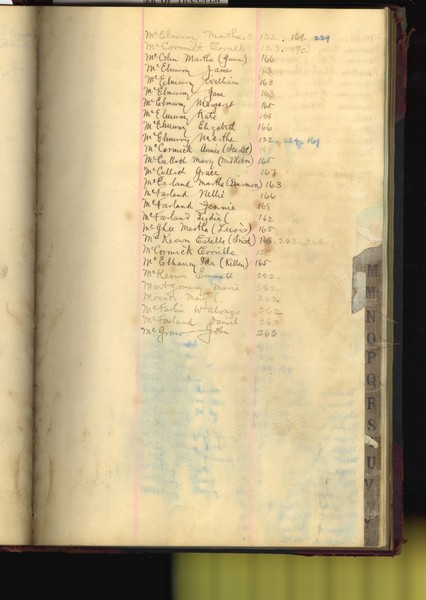 McElmury Martha 122. 169. 229
McCormick Orville 123. 170.
McColm Martha (Gunn) 166
McElmury James 163
McElmury William 163
McElmury Jane 163
McElmury Margaret 165
McElmury Kate 165
McElmury Elizabeth 166
McElmury Martha 122, 229, 169
McCormick Annie
McCulloch Mary (Middleton) 165
McCulloch Grace 167
McFarland Martha (Dinsmon) 163
McFarland Nellie 166
McFarland Jennie 169
McFarland Lydia 162
McGhee Martha (Lewis) 165
McKeown Estella 168. 222. 268.
McCormick Orville
McElhaney Ida (Killen) 165
McKeown Emmett 222.
Montgomery Maria 262
Moore Mary 262
McFarlin Wm Alonzo 262
McFarland Daniel 263
McGraw John 263
M
M
N
O
P
Q
R
S
U
V